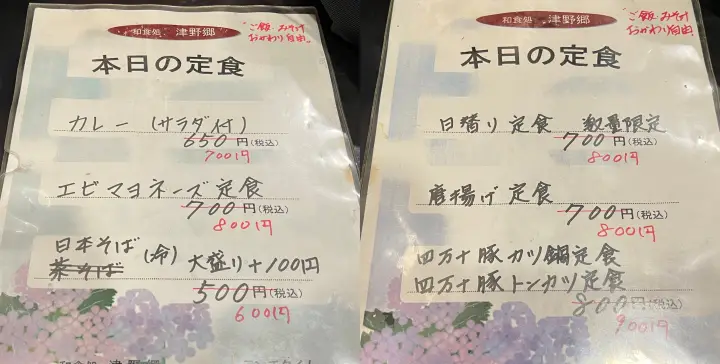 和食処 津野郷
ご飯、みそ汁
おかわり自由
本日の定食
カレー(サラダ付)
650円(税込)
700円
エビマヨネーズ定食
700円(税込)
800円
日本そば(冷)
茶そば 大盛り+100円
500円(税込)
600円
和食処 津野郷
和食処 津野郷
ご飯、みそ汁
おかわり自由
本日の定食
日替り定食 数量限定
700円(税込)
800円
唐揚げ定食
700円(税込)
800円
四万十豚カツ鍋定食
四万十豚トンカツ定食
800円(税込)
900円
和食処 津野郷